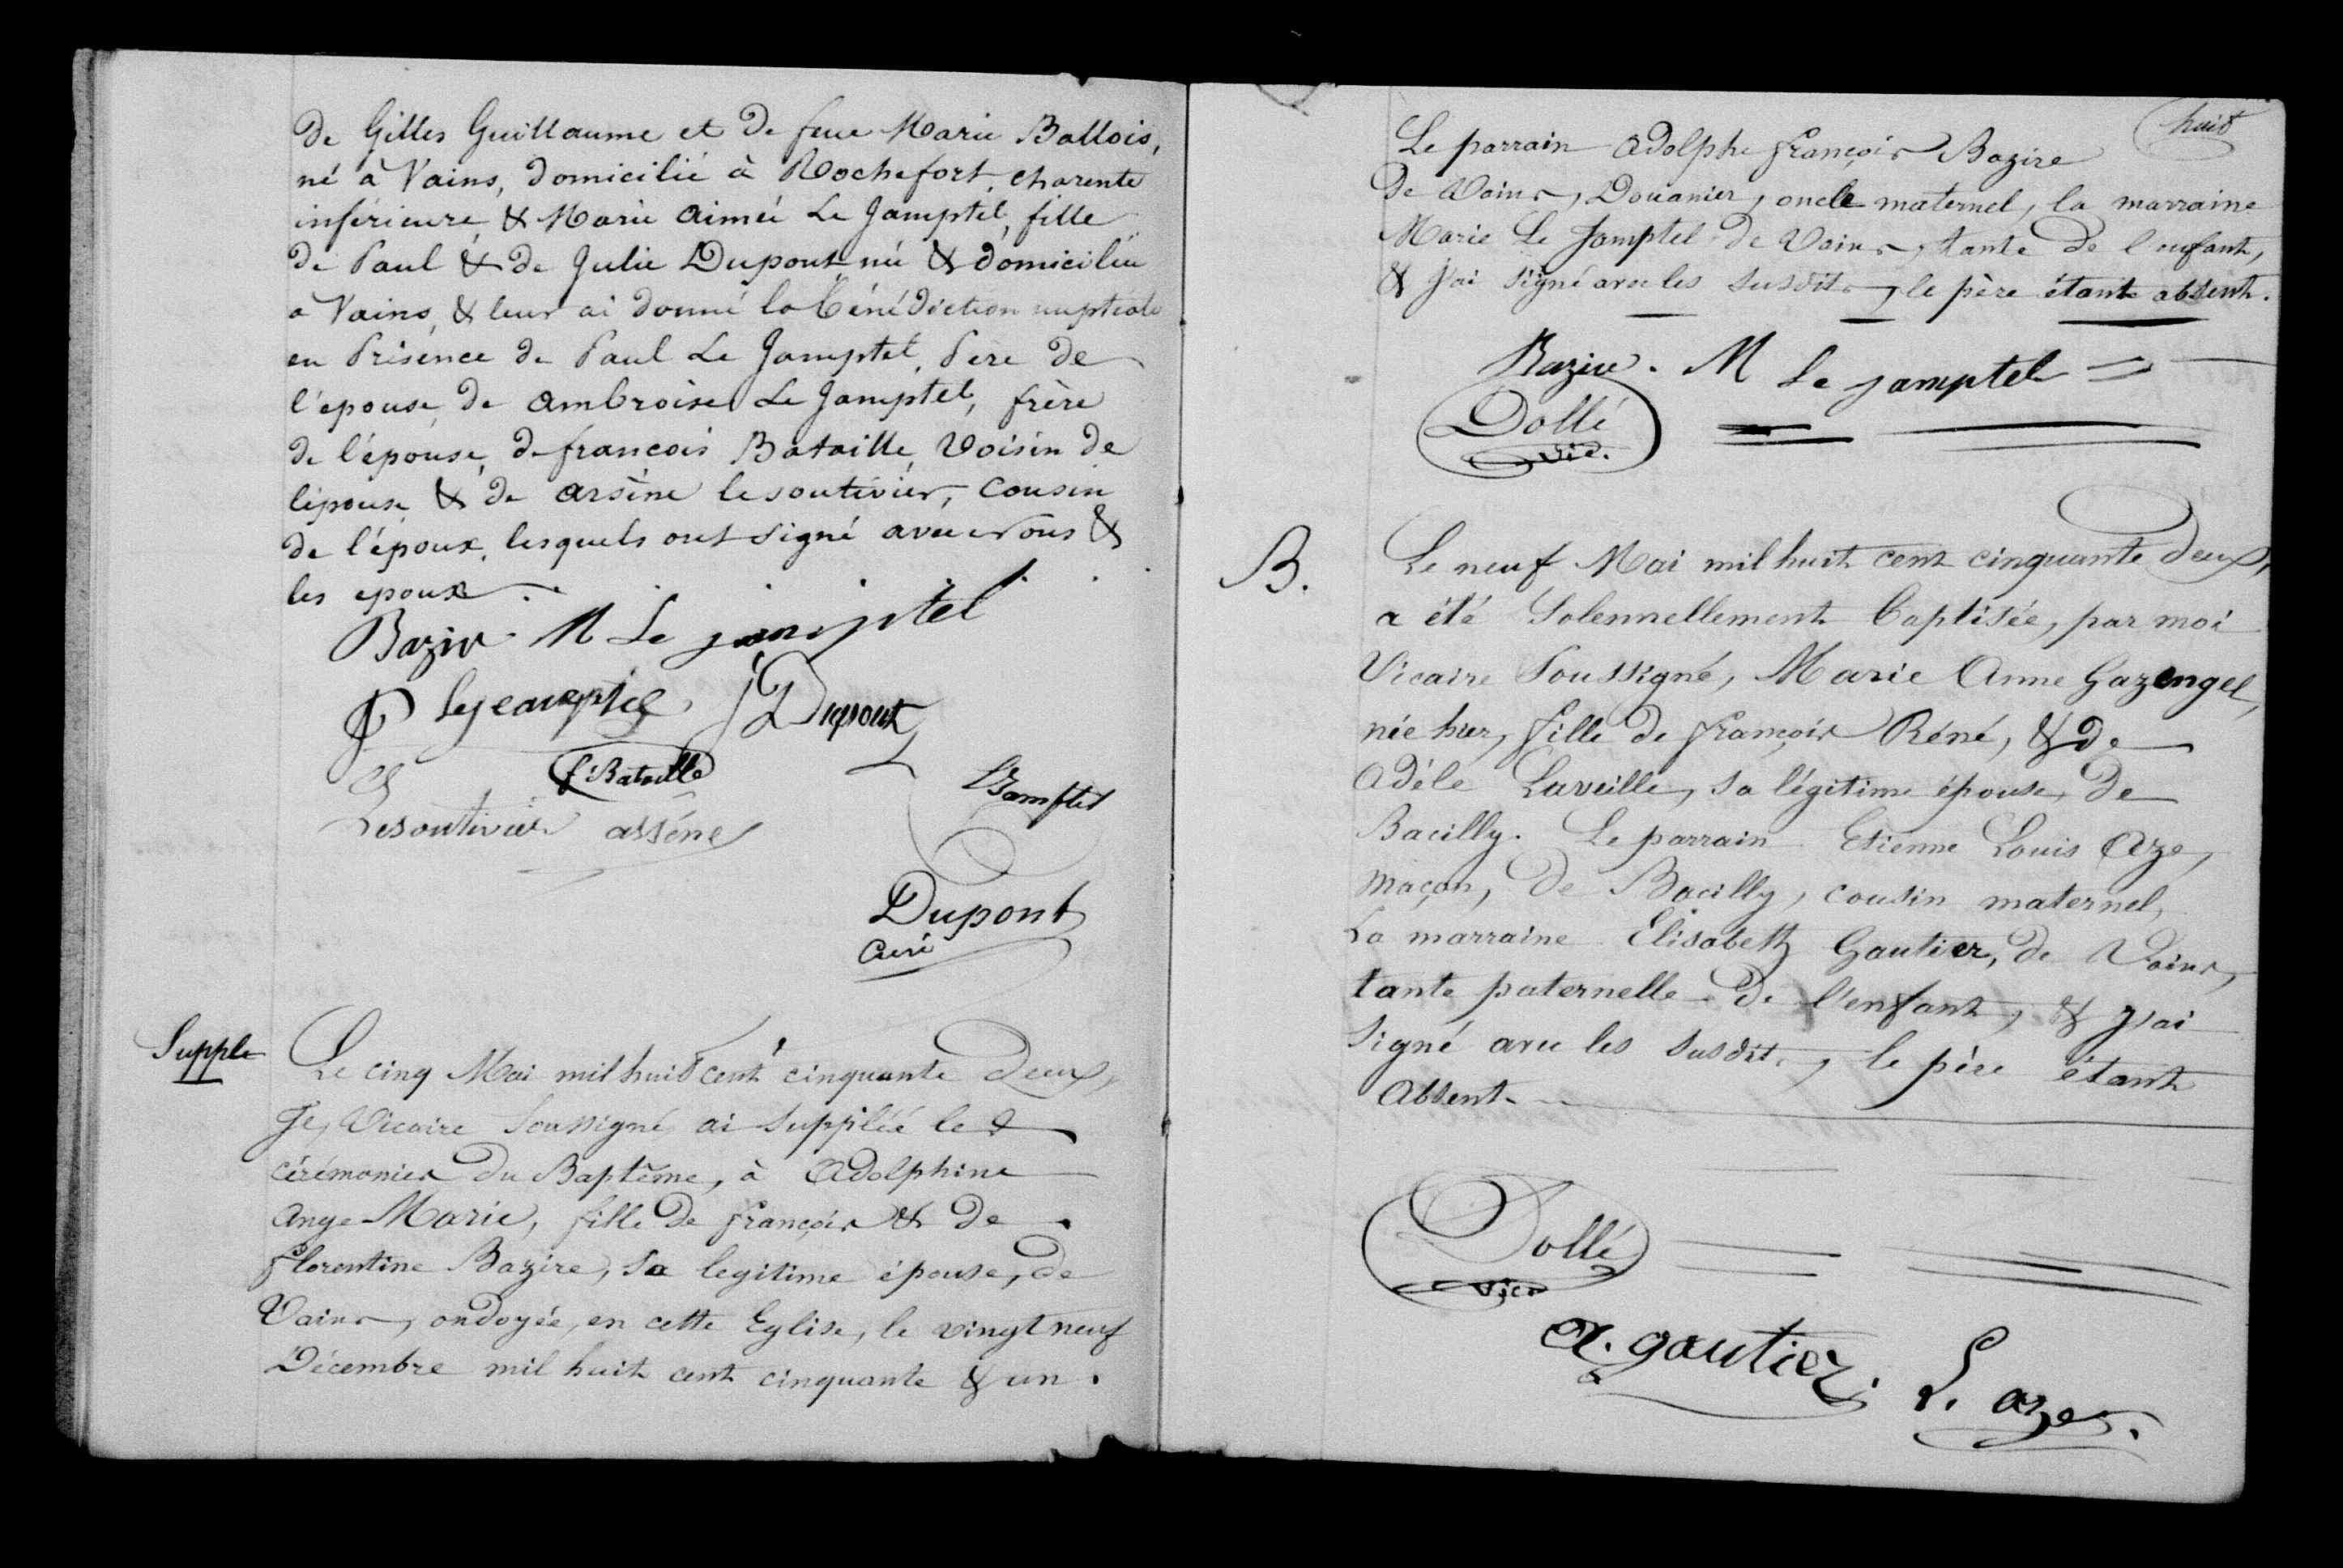 de Gilles Guillaume et de feue Marie Ballois,
né à Vains, domicilié à Rochefort, charente
inférieure, & Marie aimée Le Jamptel, fille
de Paul & de Julie Dupont, née & domiciliée
à Vains, & leur ai donné la bénédiction nuptiale
en Présence de Paul Le Jamptel, Père de
l'épouse, de ambroise Le Jamptel, frère
de l'épouse, de francois Bataille, Voisin de
l'épouse & de arsène lesoutivier, Cousin
de l'époux, lesquels ont signé avec nous &
les epoux.
Bazire M Le jamptel
P lejeamptel J Dupont
f. Bataille
Lesoutivier arsène
Dupont
Curé
Supple
Le cinq Mai mil huit cent cinquante deux,
Je, Vicaire Soussigné ai suppléé les
cérémonies du Baptême, à Adolphine
Ange Marie, fille de françois & de
florentine Bazire, sa legitime épouse, de
Vains, ondoyée, en cette Eglise, le vingt neuf
Décembre mil huit cent cinquante & un.
huit
Le parrain Adolphe françois Bazire
de Vains, Douanier, oncle maternel, la marraine
Marie Le Jamptel de Vains, tante de l'enfant,
& j'ai signé avec les susdits, le père étant absent.
Bazire. M Le jamptel
Dollé
vic.
B.
Le neuf Mai mil huit cent cinquante deux,
a été Solennellement baptisée, par moi
Vicaire Soussigné, Marie Anne Gazengel,
née hier, fille de françois Réné, & de
Adèle Laveille, sa légitime épouse, de
Bacilly. Le parrain Etienne Louis Aze,
maçon, de Bacilly, cousin maternel,
La marraine Elisabeth Gautier, de Vains,
tante paternelle de l'enfant, & j'ai
signé avec les susdits, le père étant
Absent.
Dollé
vic
a. gautier. L. aze.